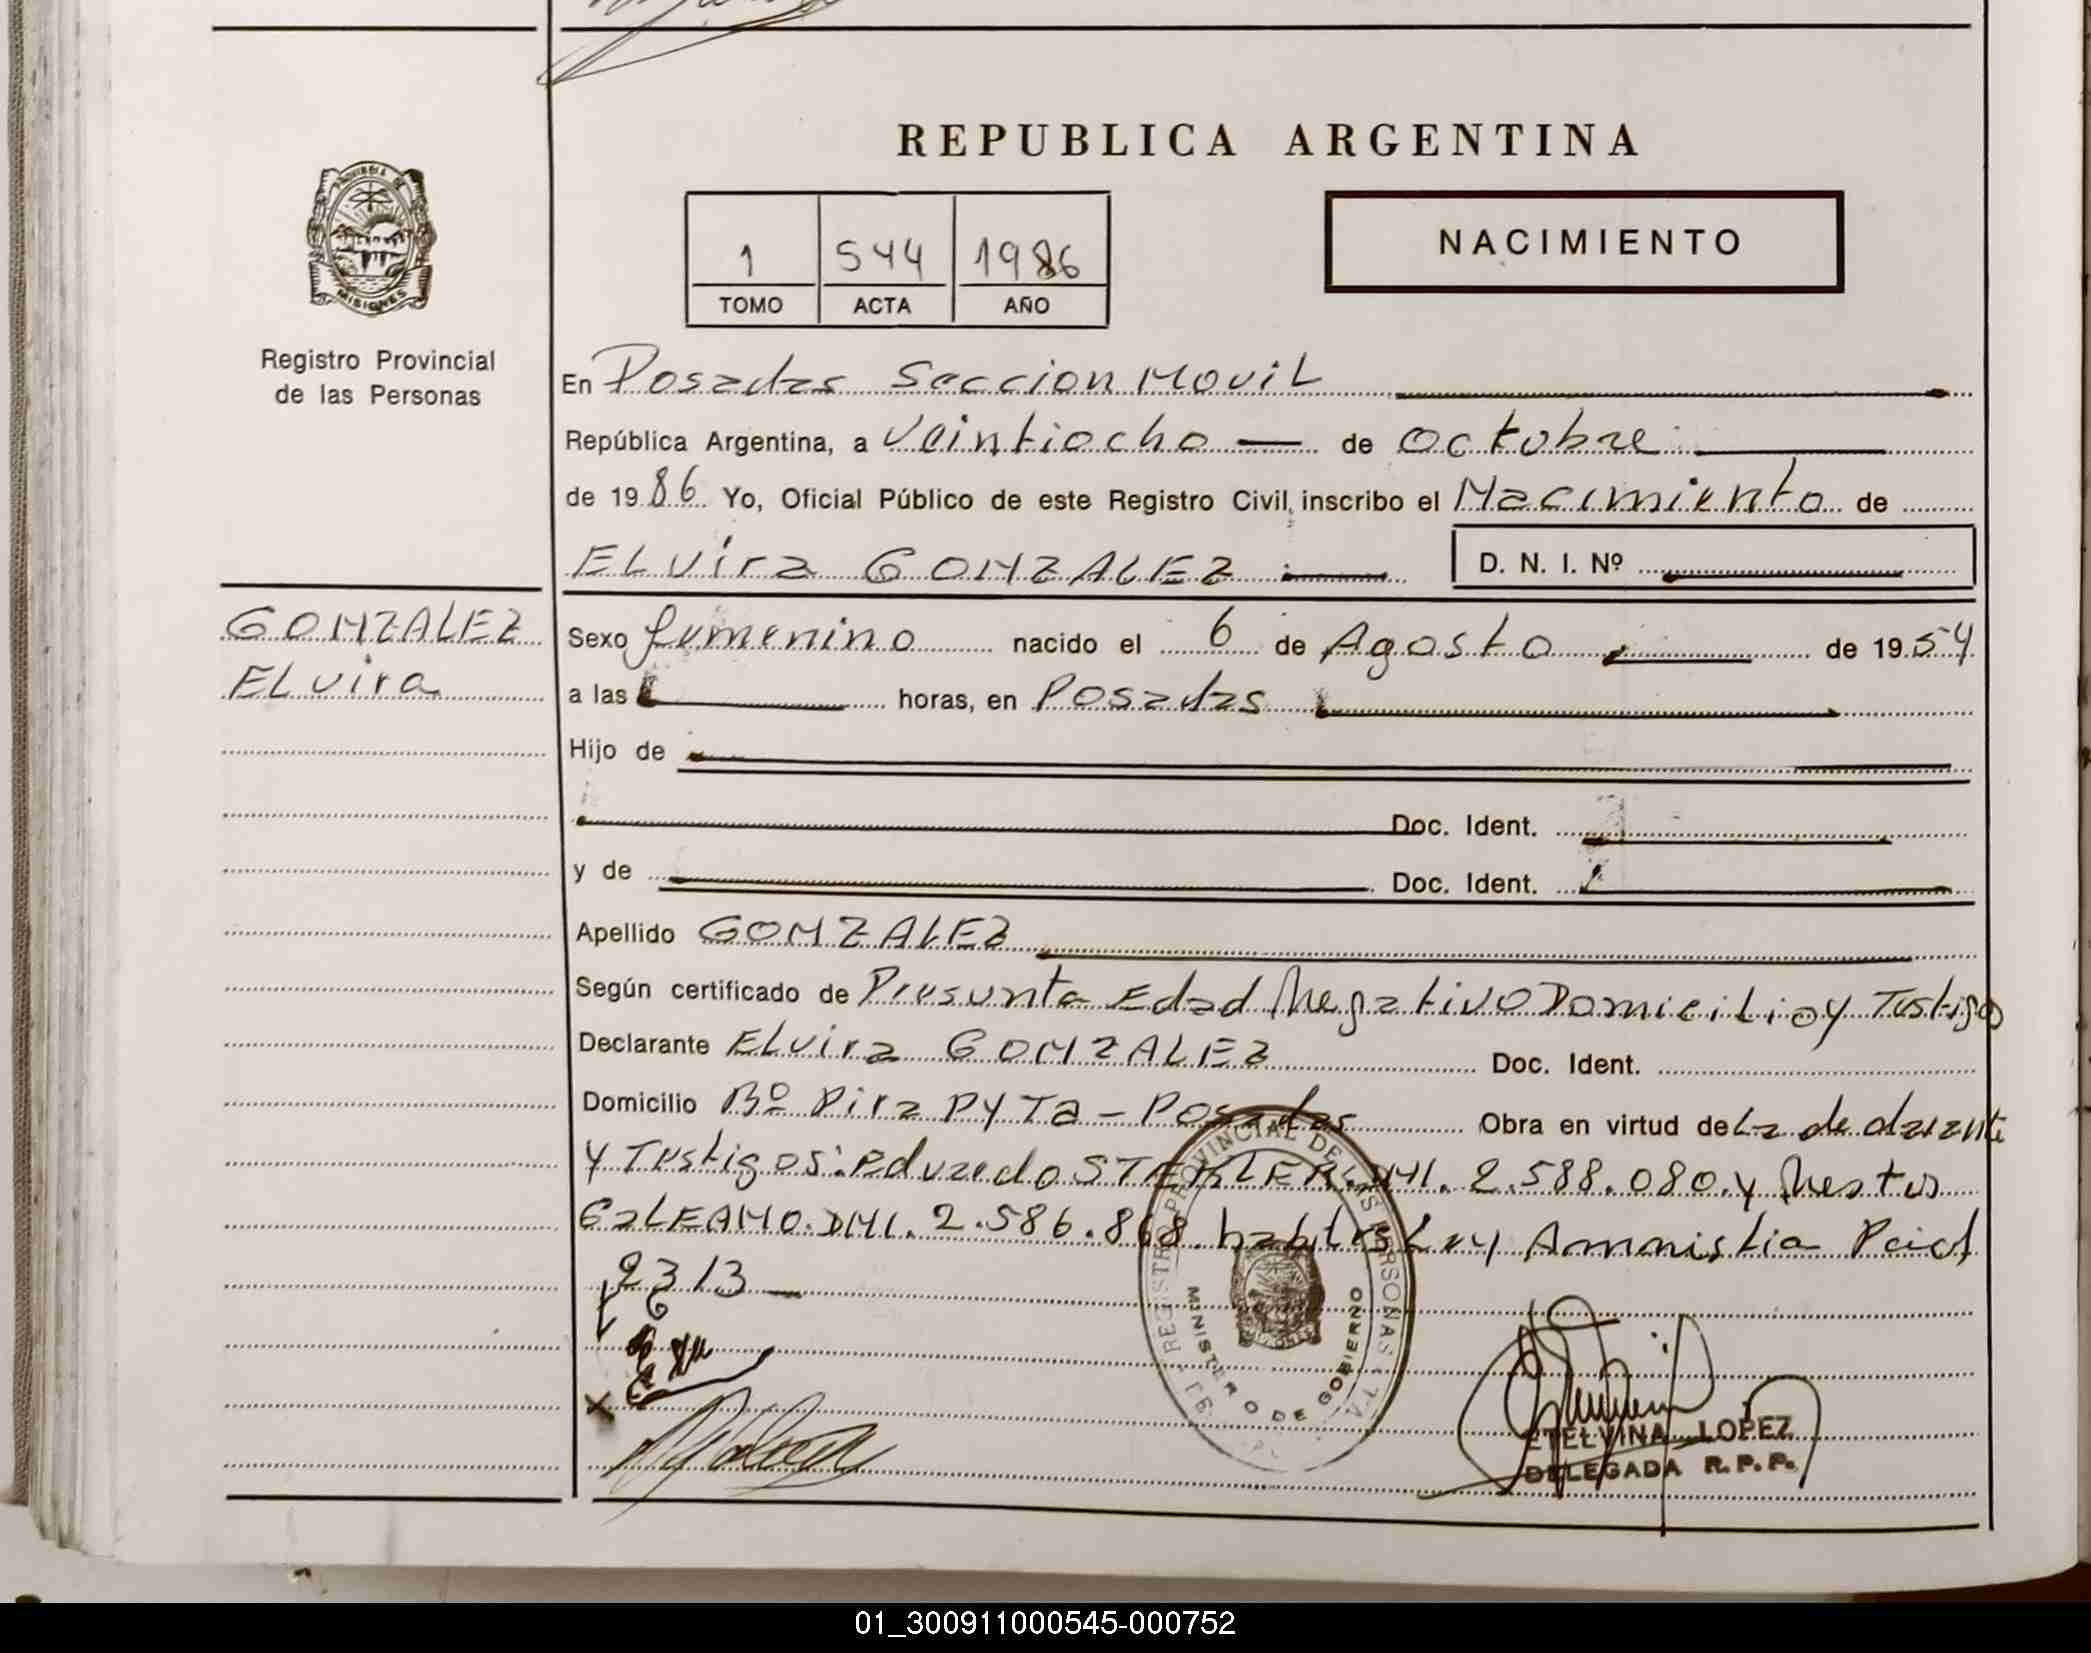 REPUBLICA ARGENTINA
PROVINCIA DE
MISIONES
1 544 1986
TOMO ACTA AÑO
NACIMIENTO
Registro Provincial
de las Personas
En Posadas Seccion Movil
República Argentina, a Veintiocho — de octubre
de 1986 Yo, Oficial Público de este Registro Civil, inscribo el Nacimiento de
ELvira GONZALEZ — D. N. I. Nº
GONZALEZ
ELvira
Sexo femenino nacido el 6 de Agosto de 1954
a las horas, en Posadas
Hijo de
Doc. Ident.
y de Doc. Ident.
Apellido GONZALEZ
Según certificado de Presunta Edad Negativo Domicilio y Testigos
Declarante ELvira GONZALEZ Doc. Ident.
Domicilio Bº Pira PyTa - Posadas Obra en virtud de La declarante
y Testigos: Eduardo DNI. 2.588.080. y Nestor
GaLEANO. DNI. 2.586.868. habiles Ley Amnistia
2313 —
REGISTRO PROVINCIAL DE LAS PERSONAS
MINISTERIO DE GOBIERNO
ETELVINA LOPEZ
DELEGADA R.P.P.
01_300911000545-000752